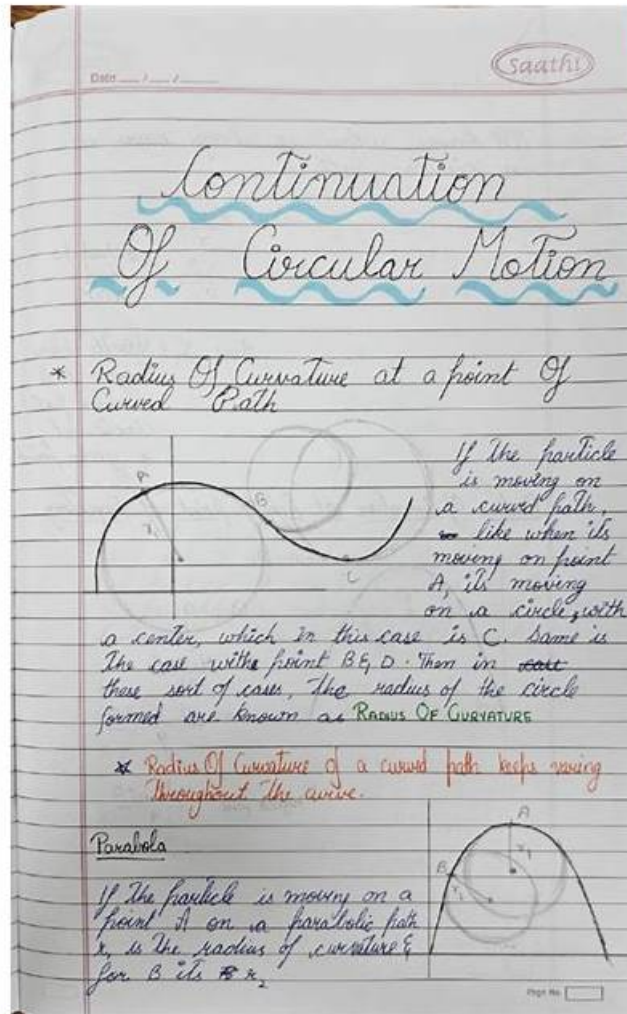 Saathi
Date ___/___/___
Continuation
Of Circular Motion
* Radius Of Curvature at a point Of
Curved Path
A
r₁
B
C
If the particle
is moving on
a curved path,
like when its
moving on point
A, its moving
on a circle, with
a center, which in this case is C. Same is
the case with point B & D. Then in
these sort of cases, the radius of the circle
formed are known as RADIUS OF CURVATURE
* Radius Of Curvature of a curved path keeps varing
throughout the curve.
Parabola
A
r₁
B
r₁
If the particle is moving on a
point A on a parabolic path
r₁ is the radius of curvature &
for B its r₂
Page No.